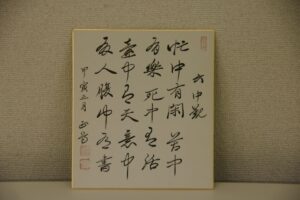 六中観
忙中有閑 苦中
有樂 死中有活
壷中有天 意中
有人 腹中有書
甲寅二月